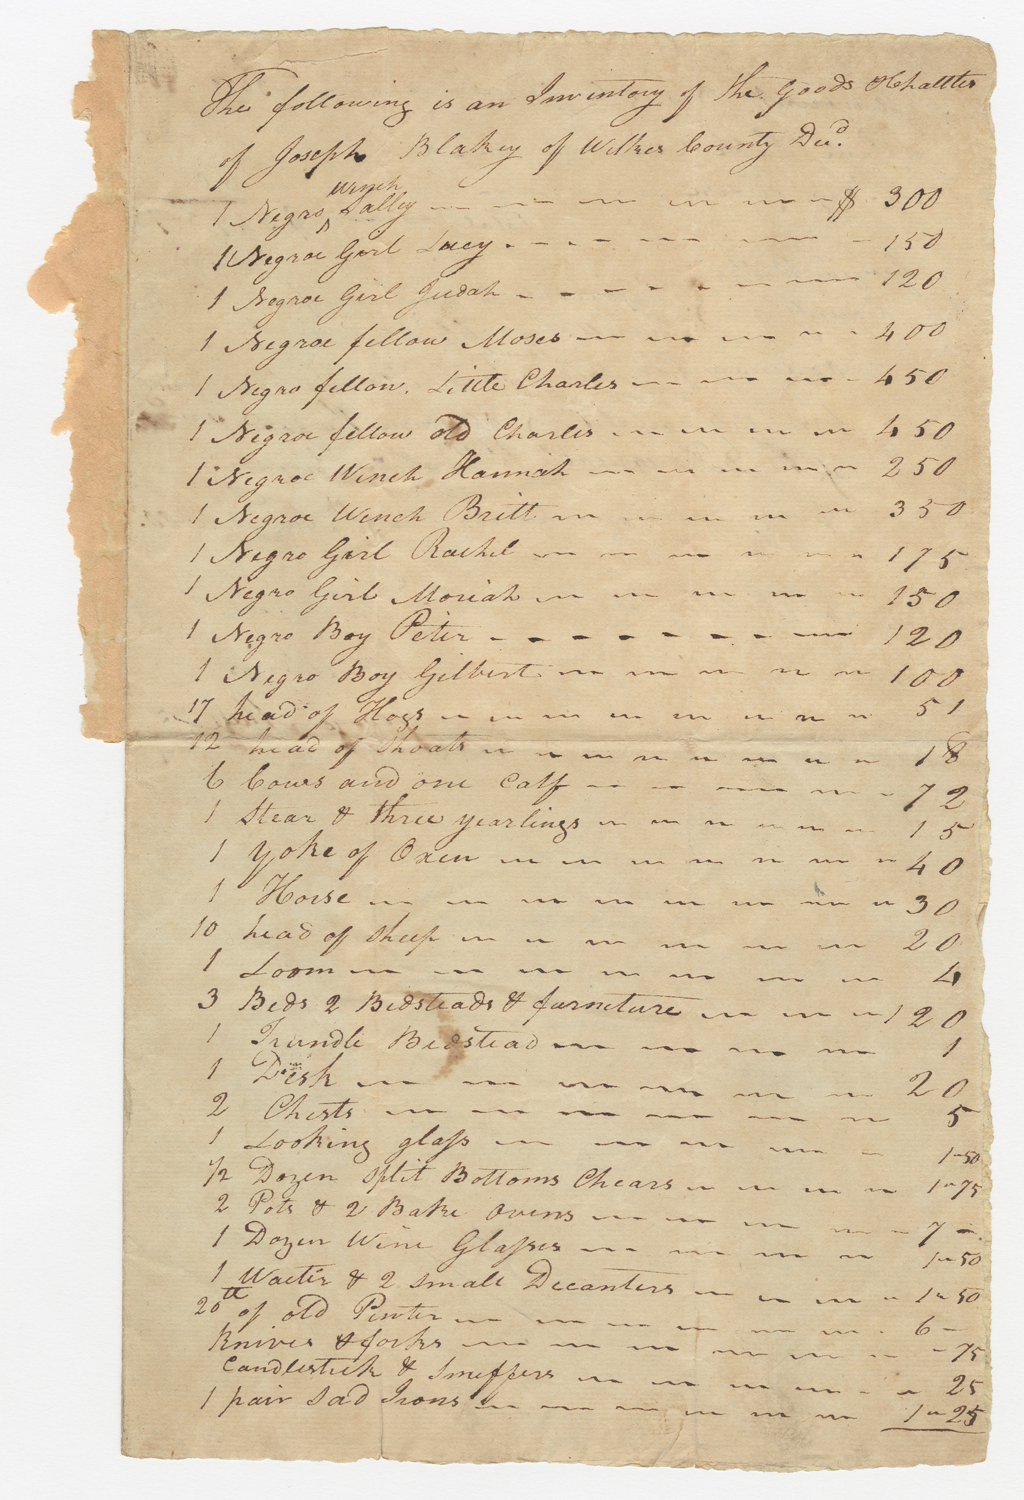 The following is an Inventory of the Goods & Chattles
of Joseph Blakey of Wilkes County Decd.
Wench
1 Negro ‸ Salley — — — — — — $ 300
1 Negroe Gorl Lucy - - - — — — 150
1 Negroe Girl Judah - - - - - — — 120
1 Negroe fellow Moses — — — — - 400
1 Negro fellow. Little Charles — — — - 450
1 Negroe fellow old Charles — — — — 450
1 Negroe Wench Hannah — — — — — 250
1 Negroe Wench Britt — — — — — 350
1 Negro Girl Rachel — — — — — - 175
1 Negro Girl Moriah — — — — — 150
1 Negro Boy Peter - - - - - - - — 120
1 Negro Boy Gilbert — — — — — 100
17 head of Hogs — — — — — — — — 51
12 head of Shoats — — — — — — — — 18
6 Cows and one Calf — — — — - 72
1 Stear & three yearlings — — — — — — 15
1 Yoke of Oxen — — — — — — — 40
1 Horse — — — — — — — — 30
10 head of Sheep — — — — — — 20
1 Loom — — — — — — — — 4
3 Beds 2 Bedsteads & furneture — — — 120
1 Trundle Bedstead — — — — — 1
1 Desk — — — — — — — 20
2 Chests — — — — — — — 5
1 Looking glass — — — — - 1-50
1/2 Dozen Split Bottoms Chears — — — — 1-75
2 Pots & 2 Bake Ovens — — — — — 7 -
1 Dozen Wine Glasses — — — — 1-50
1 Waeter & 2 small Decanters — — — - 1-50
20tt of old Peuter — — — — — — - 6 -
Knives & forks — — — — — — - 75
Candlestick & Snuffers — — — — - - 25
1 pair Sad Irons — — — — — — 1-25